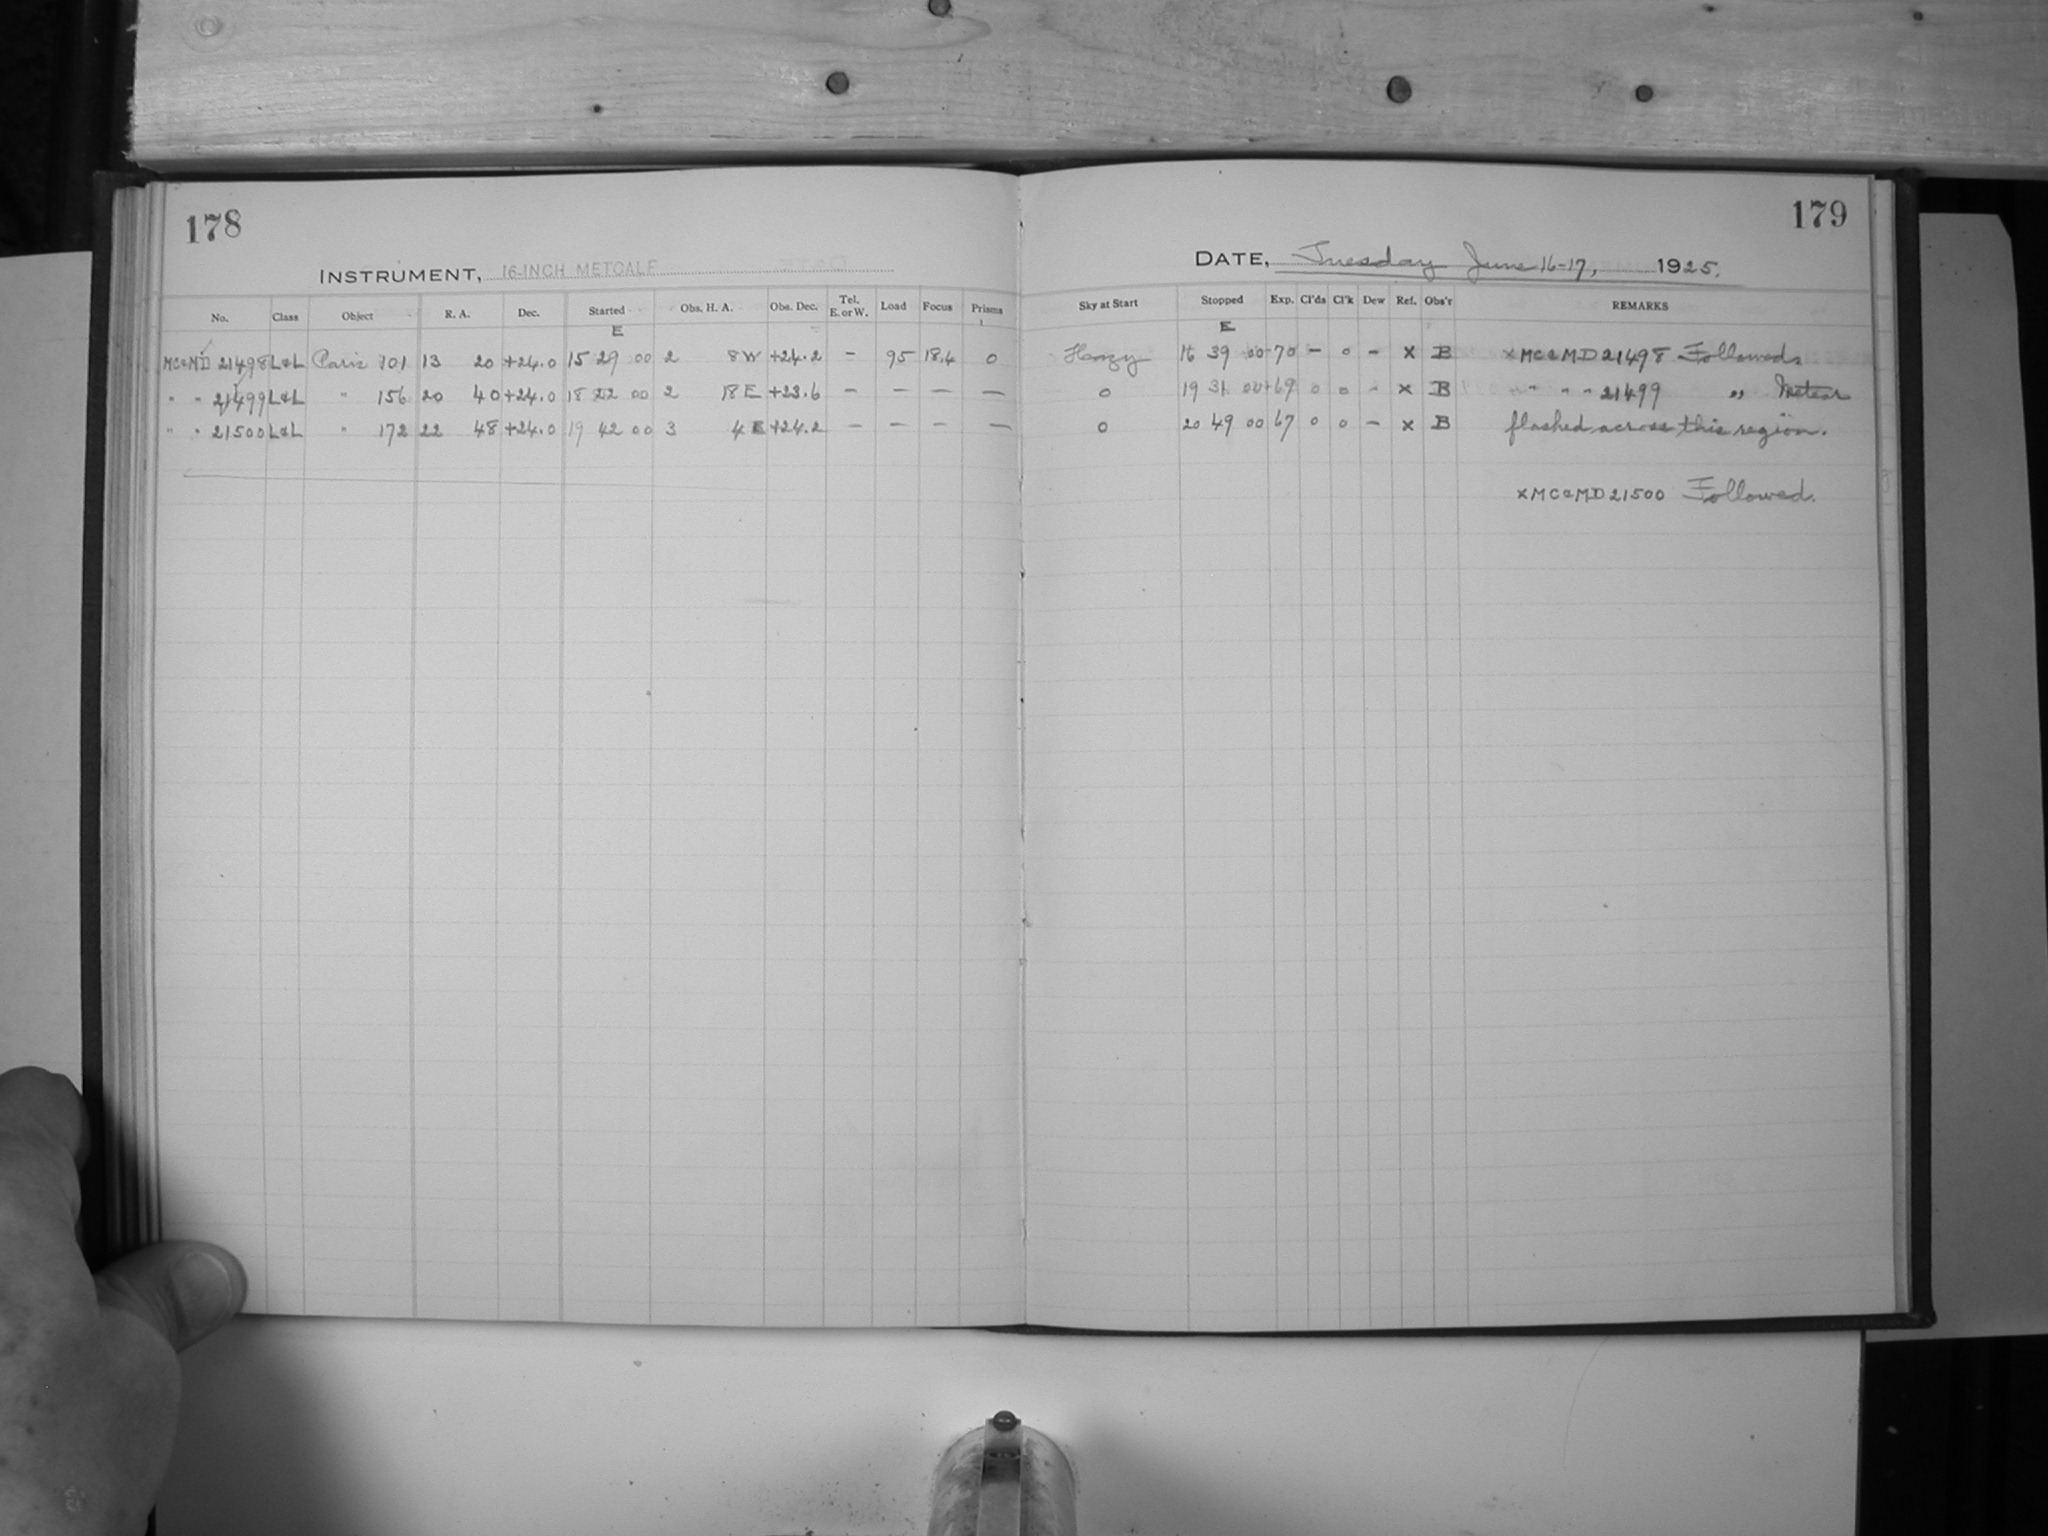 178
INSTRUMENT, 16-INCH METCALF
No. Class Object R. A. Dec. Started Obs. H. A. Obs. Dec. Tel. E. or W. Load Focus Prisms
E
MC&MD 21498 L&L Paris 101 13 20 +24.0 15 29 00 2 8 W +24.2 - 95 18.4 0
" " 21499 L&L " 156 20 40 +24.0 18 22 00 2 18 E +23.6 - - - -
" " 21500 L&L " 172 22 48 +24.0 19 42 00 3 4 E +24.2 - - - -
179
DATE, Tuesday June 16-17, 1925.
Sky at Start Stopped Exp. Cl'ds Cl'k Dew Ref. Obs'r REMARKS
E
Hazy 16 39 00 70 - 0 - x B x MC&MD 21498 Followed.
0 19 31 00 69 0 0 - x B " " " 21499 " Meteor
0 20 49 00 67 0 0 - x B flashed across this region.
x MC&MD 21500 Followed.